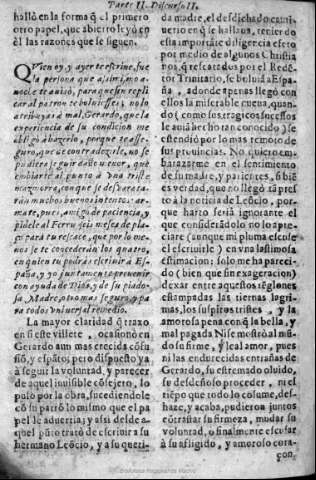 Parte II. Discurso II.
hallò en la forma q̃ el primero
otro papel, que abierto leyò en
èl las razones que se siguen.
Quien oy, y ayer te escriue, fue
la persona que assimismo
noche te auisò, para que sin repli
car al patron te boluiesses; no lo
atribuyas a mal, Gerardo, que la
experiencia de su condicion me
obligò a hazerlo, porque te asse-
guro, que a contradezirle, no se
pudiera seguir daño tuyo, que
embiarte al punto a vna triste
mazmorra, con que se desbarata-
ràn muchos buenos intentos: ar-
mate, pues, amigo, de paciencia, y
pidele al Ferru seis meses de pla-
ço para tu rescate, que por lo me-
nos se te concederàn los quatro,
en quien tu podràs escriuir a Es-
paña, y yo juntamente preuenir
con ayuda de Dios, y de su piado-
sa Madre, otro mas seguro, y pa
ra todos vniuersal remedio.
La mayor claridad q̃ traxo
en si este villete, ocasionò en
Gerardo aun mas crecida cõfu
siõ, y espãto; pero dispuesto ya
à seguir la voluntad, y parecer
de aquel inuisible cõsejero, lo
puso por la obra, sucediendole
cõ su patrò lo mismo que el pa
pel le aduertia; y assi desde a-
quel pũto tratò de escriuir a su
hermano Leõcio, y a su queri-
da madre, el desdichado cauti-
uerio en q̃ se hallaua, teniendo
esta importãte diligencia efeto
por medio de algunos Christia
nos, q̃ rescatados por el Redẽ-
tor Trinitario, se boluiã a Espa-
ña, adonde apenas llegò con
ellos la miserable nueua, quan-
do (como sus tragicos sucessos
le auiã hecho tan conocido) se
estendiò por lo mas remoto de
sus prouincias. No quiero em-
barazarme en el sentimiento
de su madre, y parientes, si biẽ
es verdad, que no llegò tã pres-
to à la noticia de Leõcio, por-
que harto seria ignorante el
que considerãdolo no lo apre-
ciare (aunque mi pluma escuse
el escriuirle) en vna lastimosa
estimacion: solo me ha pareci-
do (bien que sin exageracion)
dexar entre aquestos rẽglones
estampadas las tiernas lagri-
mas, los suspiros, y la
amorosa pena con q̃ la bella, y
mal pagada Nise mostrò al mũ-
do su firme, y leal amor, pues
ni las endurecidas entrañas de
Gerardo, su estremado oluido,
su desdeñoso proceder, ni el
tiẽpo que todo lo cõsume, des-
haze, y acaba, pudieron juntos
cõtrastar su firmeza, mudar su
voluntad, o finalmente escusar
à su afligido, y amoroso cora-
çon,
Biblioteca